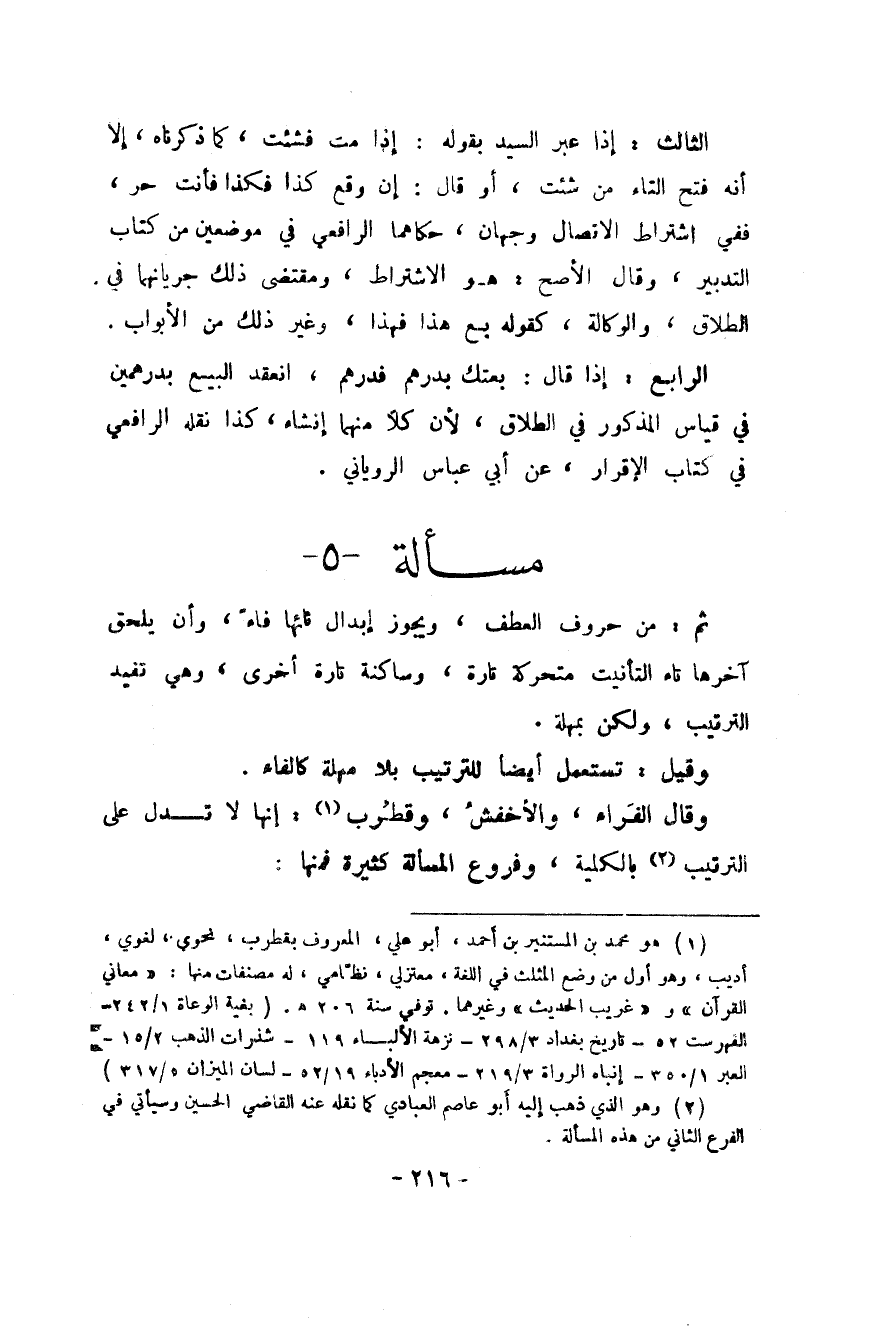 الثالث : إذا عبر السيد بقوله : إذا مت فشئت ، كما ذكرناه ، إلا
أنه فتح التاء من شئت ، أو قال : إن وقع كذا فكذا فأنت حر ،
ففي اشتراط الاتصال وجهان ، حكاهما الرافعي في موضعين من كتاب
التدبير ، وقال الأصح : هـو الاشتراط ، ومقتضى ذلك جريانهما في .
الطلاق ، والوكالة ، كقوله بع هذا فهذا ، وغير ذلك من الأبواب .
الرابع : إذا قال : بعتك بدرهم فدرهم ، انعقد البيع بدرهمين
في قياس المذكور في الطلاق ، لأن كلاً منهما إنشاء ، كذا نقله الرافعي
في كتاب الإقرار ، عن أبي عباس الروياني .
مسـألة -٥-
ثم : من حروف العطف ، ويجوز إبدال ثائها فاءً ، وأن يلحق
آخرها تاء التأنيت متحركة تارة ، وساكنة تارة أخرى ، وهي تفيد
الترتيب ، ولكن بمهلة .
وقيل : تستعمل أيضاً للترتيب بلا مهلة كالفاء .
وقال الفَراء ، والأخفشُ ، وقطرُب (١) : إنها لا تـــدل على
الترتيب (٢) بالكلية ، وفروع المسألة كثيرة فمنها :
(١) هو محمد بن المستنير بن أحمد ، أبو علي ، المعروف بقطرب ، نحوي ، لغوي ،
أديب ، وهو أول من وضع المثلث في اللغة ، معتزلي ، نظّامي ، له مصنفات منها : « معاني
القرآن » و « غريب الحديث » وغيرهما . توفي سنة ٢٠٦ هـ . ( بغية الوعاة ٢٤٢/١–
الفهرست ٥٢ – تاريخ بغداد ٢٩٨/٣ – نزهة الألبـــاء ١١٩ – شذرات الذهب ١٥/٢ –
العبر ٣٥٠/١ – إنباه الرواة ٢١٩/٣ – معجم الأدباء ٥٢/١٩ – لسان الميزان ٣١٧/٥ )
(٢) وهو الذي ذهب إليه أبو عاصم العبادي كما نقله عنه القاضي الحسين وسيأتي في
الفرع الثاني من هذه المسألة .
- ٢١٦ -